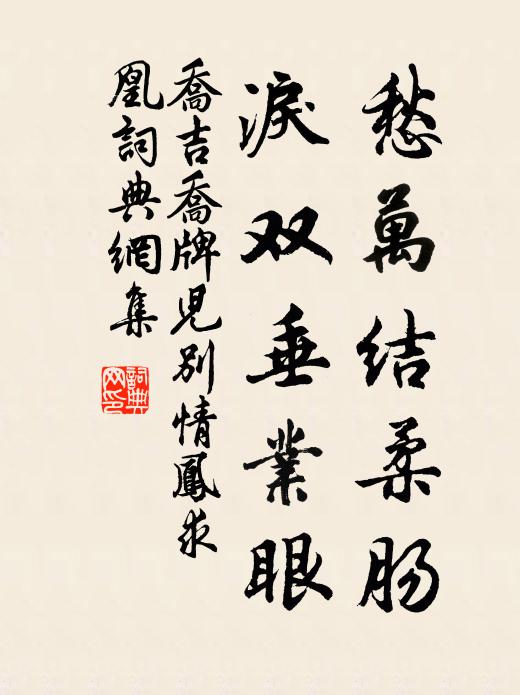 愁萬结柔肠
淚双垂業眼
喬吉喬牌児别情鳳求
凰詞典網集
詞典网印